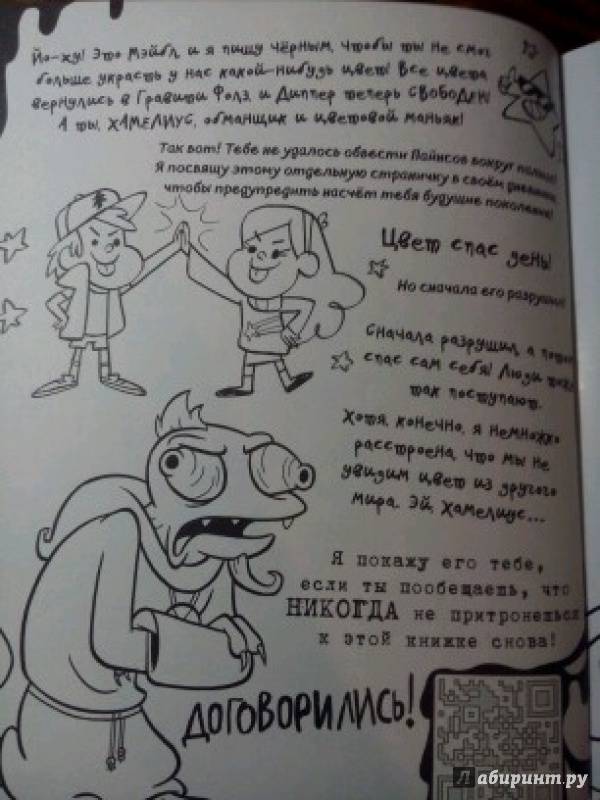 Йо-ху! Это Мэйбл, и я пишу чёрным, чтобы ты не смог
больше украсть у нас какой-нибудь цвет! Все цвета
вернулись в Гравити Фолз, и Диппер теперь СВОБОДЕН!
А ты, ХАМЕЛИУС, обманщик и цветовой маньяк!
Так вот! Тебе не удалось обвести Пайнсов вокруг пальца!
Я посвящу этому отдельную страничку в своём дневнике,
чтобы предупредить насчёт тебя будущие поколения!
Цвет спас день!
Но сначала его разрушил!
Сначала разрушил, а потом
спас сам себя! Люди тоже
так поступают.
Хотя, конечно, я немножко
расстроена, что мы не
увидим цвет из другого
мира. Эй, Хамелиус...
Я покажу его тебе,
если ты пообещаешь, что
НИКОГДА не притронешься
к этой книжке снова!
ДОГОВОРИЛИСЬ!
Лабиринт.ру